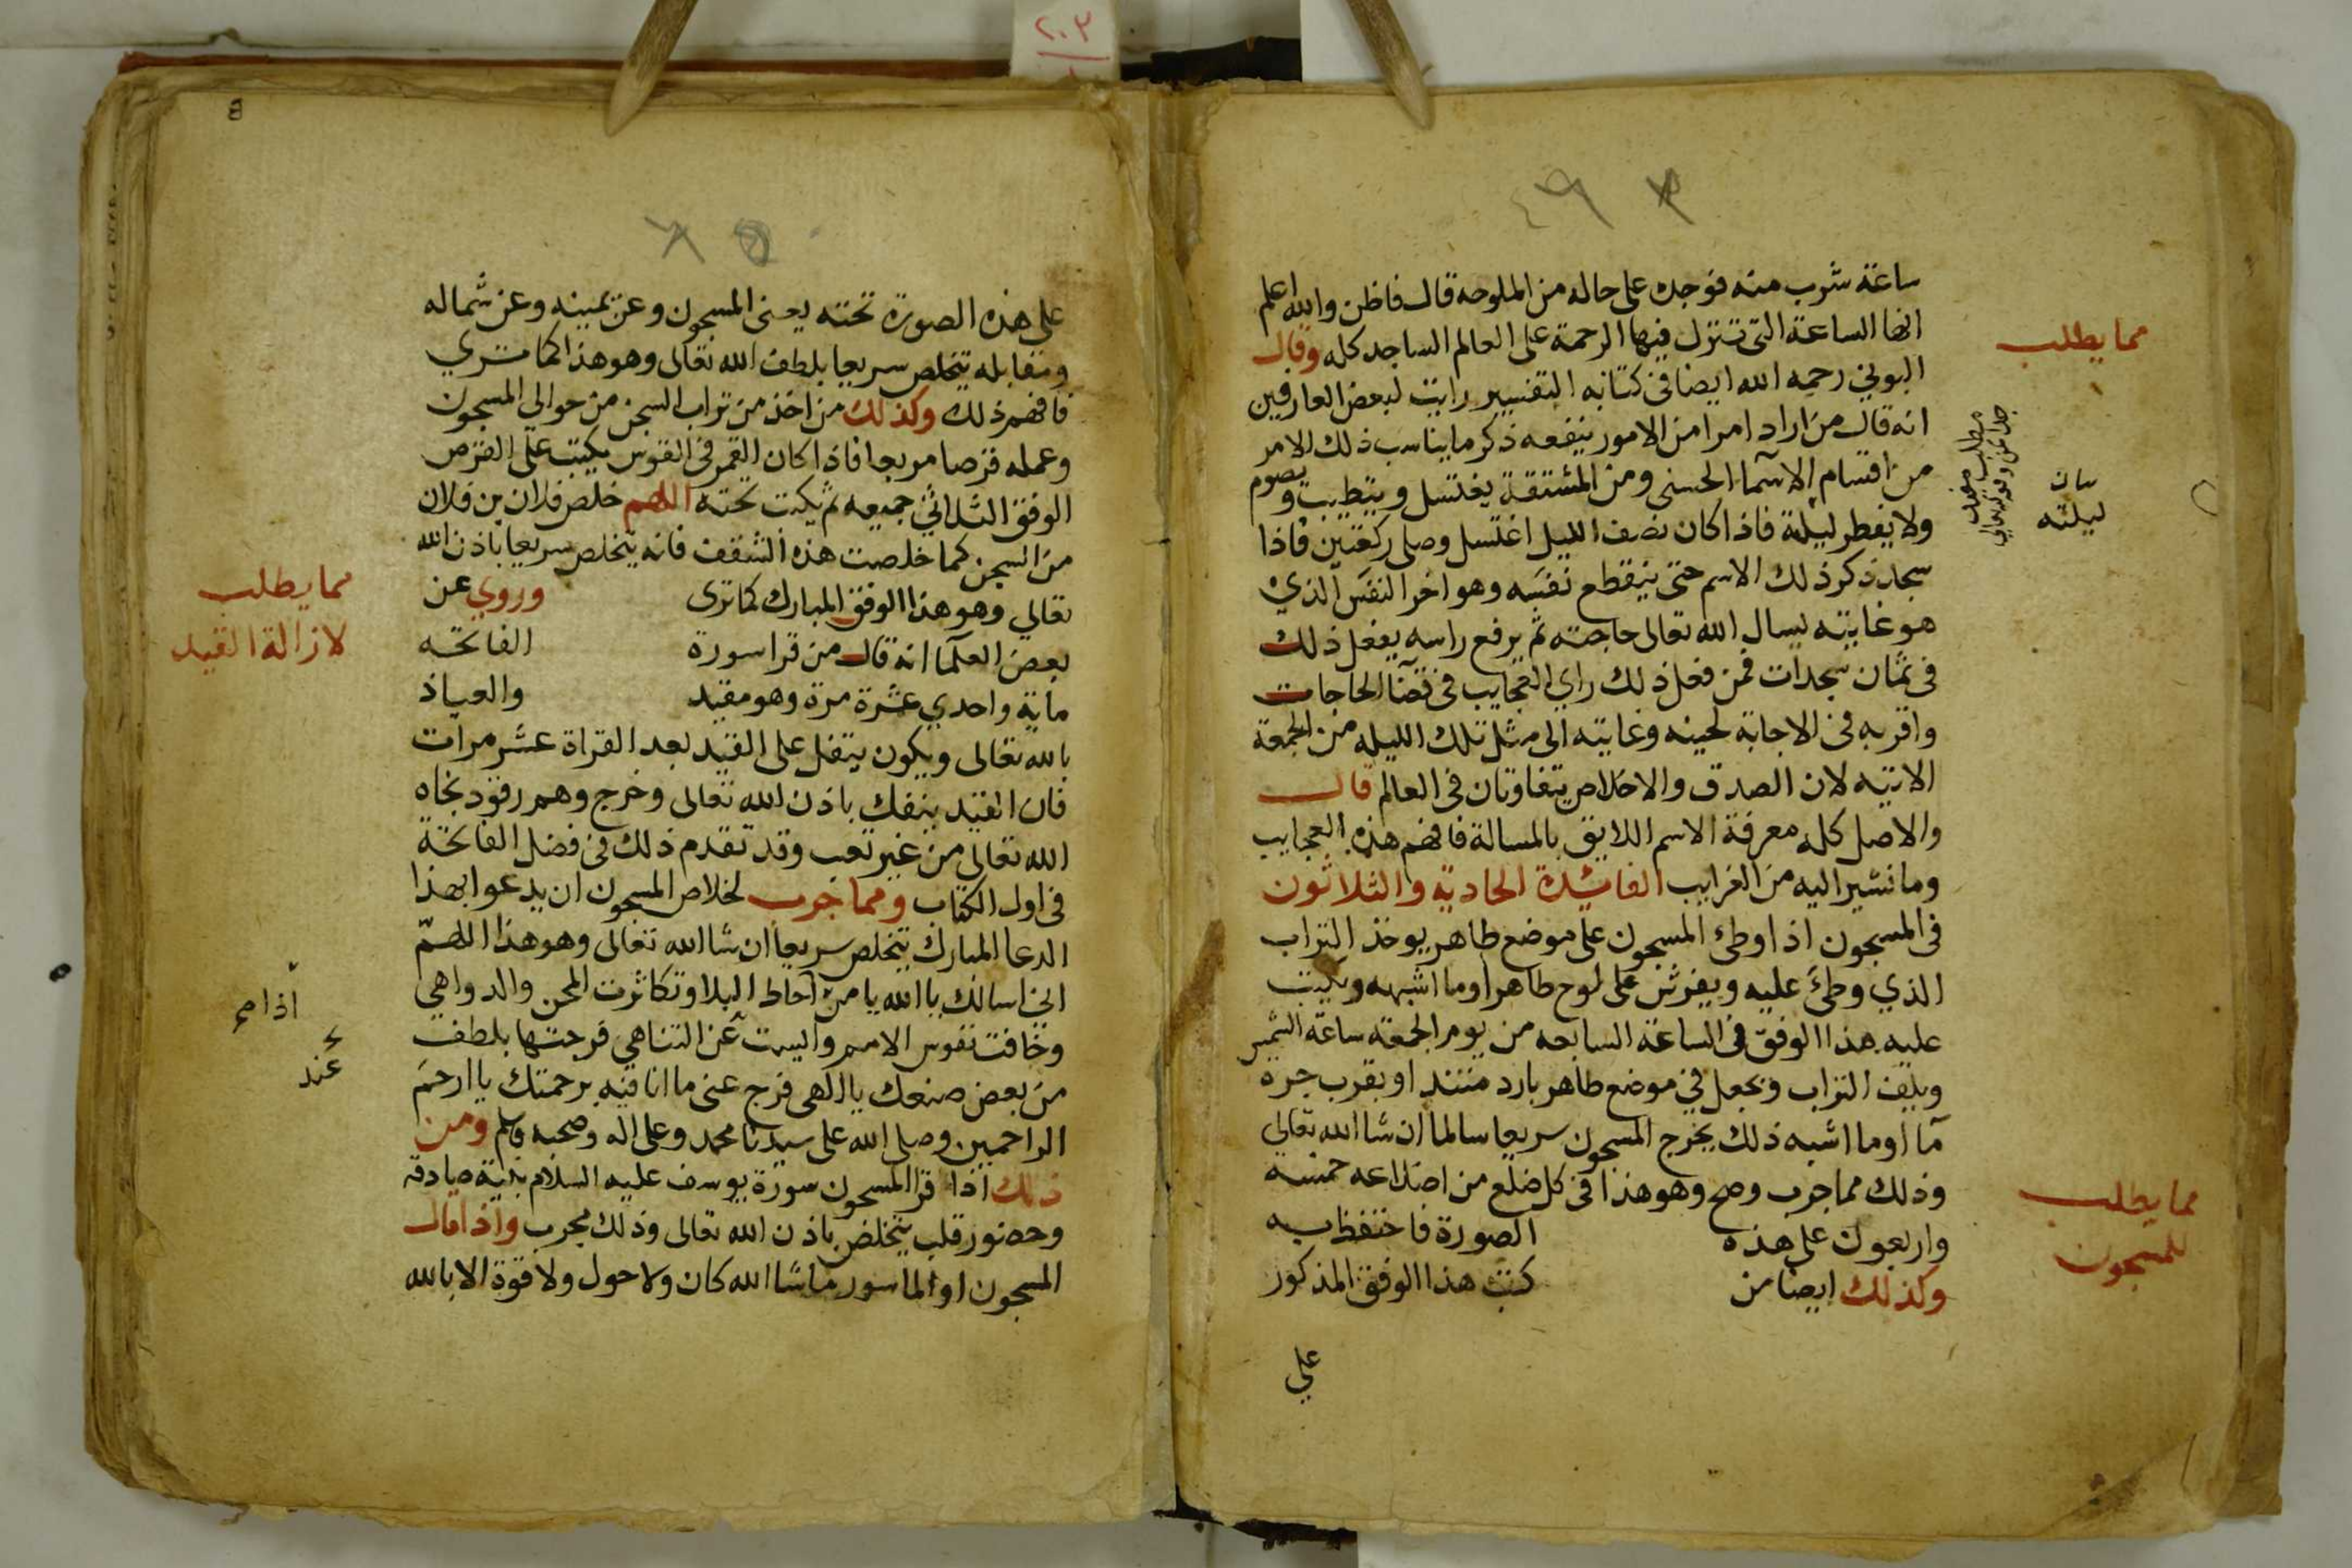 ساعة شرب منه فوجده على حاله من الملوحه قال فاظن والله اعلم
انها الساعة التى تتنزل فيها الرحمة على العالم الساجد كله وقال
البونى رحمه الله ايضا فى كتابه رايت لبعض العارفين
انه قال من اراد امرا من الامور ينفعه ذكر ما يناسب ذلك الامر
من اقسام الاسما الحسنى ومن المشتقة يغتسل ويتطيب ويصوم
ولا يفطر ليلة فاذا كان نصف الليل اغتسل وصلى ركعتين فاذا
سجد ذكر ذلك الاسم حتى ينقطع نفسه وهو اخر النفس الذي
هو غايته يسال الله تعالى حاجته ثم يرفع راسه يفعل ذلك
فى ثمان سجدات فمن فعل ذلك راي العجايب فى قضا الحاجات
واقربه فى الاجابة لحينه وغايته الى مثل تلك الليله من الجمعة
الاتيه لان الصدق والاخلاص يتفاوتان فى العالم قال
والاصل كله معرفة الاسم اللايق بالمسالة فافهم هذه العجايب
وما نشير اليه من الغرايب الفائدة الحادية والثلاثون
فى المسجون اذا وطئ المسجون على موضع طاهر يوخذ التراب
الذي وطئ عليه ويفرش على لوح طاهر او ما اشبهه ويكتب
عليه هذا الوفق فى الساعة السابعه من يوم الجمعة ساعة
ويلف التراب ويجعل في موضع طاهر بارد او بقرب جرة
ما او ما اشبه ذلك يخرج المسجون سريعا سالما ان شا الله تعالى
وذلك مما جرب وصح وهو هذا فى كل ضلع من اضلاعه خمسة
واربعون على هذه الصورة فاحتفظ به
وكذلك ايضا من كتب هذا الوفق المذكور
علي
مما يطلب
بيان
ليلته
مما يطلب
للمسجون
8
على هذه الصورة تحته يعنى المسجون وعن يمينه وعن شماله
ومقابله يتخلص سريعا بلطف الله تعالى وهو هذا كما تري
فافهم ذلك وكذلك من اخذ من تراب السجن من حوالي المسجون
وعمله قرصا مربعا فاذا كان القمر فى القوس يكتب على القرص
الوفق الثلاثي جميعه ثم يكتب تحته اللهم خلص فلان بن فلان
من السجن كما خلصت هذه الشقف فانه يتخلص سريعا باذن الله
تعالي وهو هذا الوفق المبارك كما ترى وروي عن
بعض العلما انه قال من قرا سورة الفاتحه
ماية واحدي عشرة مرة وهو مقيد والعياذ
بالله تعالى ويكون يتفل على القيد بعد القراة عشر مرات
فان القيد ينفك باذن الله تعالى وخرج وهم رقود نجاه
الله تعالى من غير تعب وقد تقدم ذلك فى فضل الفاتحة
فى اول الكتاب ومما جرب لخلاص المسجون ان يدعوا بهذا
الدعا المبارك يتخلص سريعا ان شا الله تعالى وهو هذا اللهم
انى اسالك يا الله يا من احاط البلا وتكاثرت المحن والدواهي
وخافت نفوس الامم وايست عن التناهي فرجتها بلطف
من بعض صنعك يا الهى فرج عنى ما انا فيه برحمتك يا ارحم
الراحمين وصلى الله على سيدنا محمد وعلى اله وصحبه وسلم ومن
ذلك اذا قرا المسجون سورة يوسف عليه السلام بنية صادقه
وحضور قلب يتخلص باذن الله تعالى وذلك مجرب واذا قال
المسجون او الماسور ماشا الله كان ولا حول ولا قوة الا بالله
مما يطلب
لازالة القيد
عند